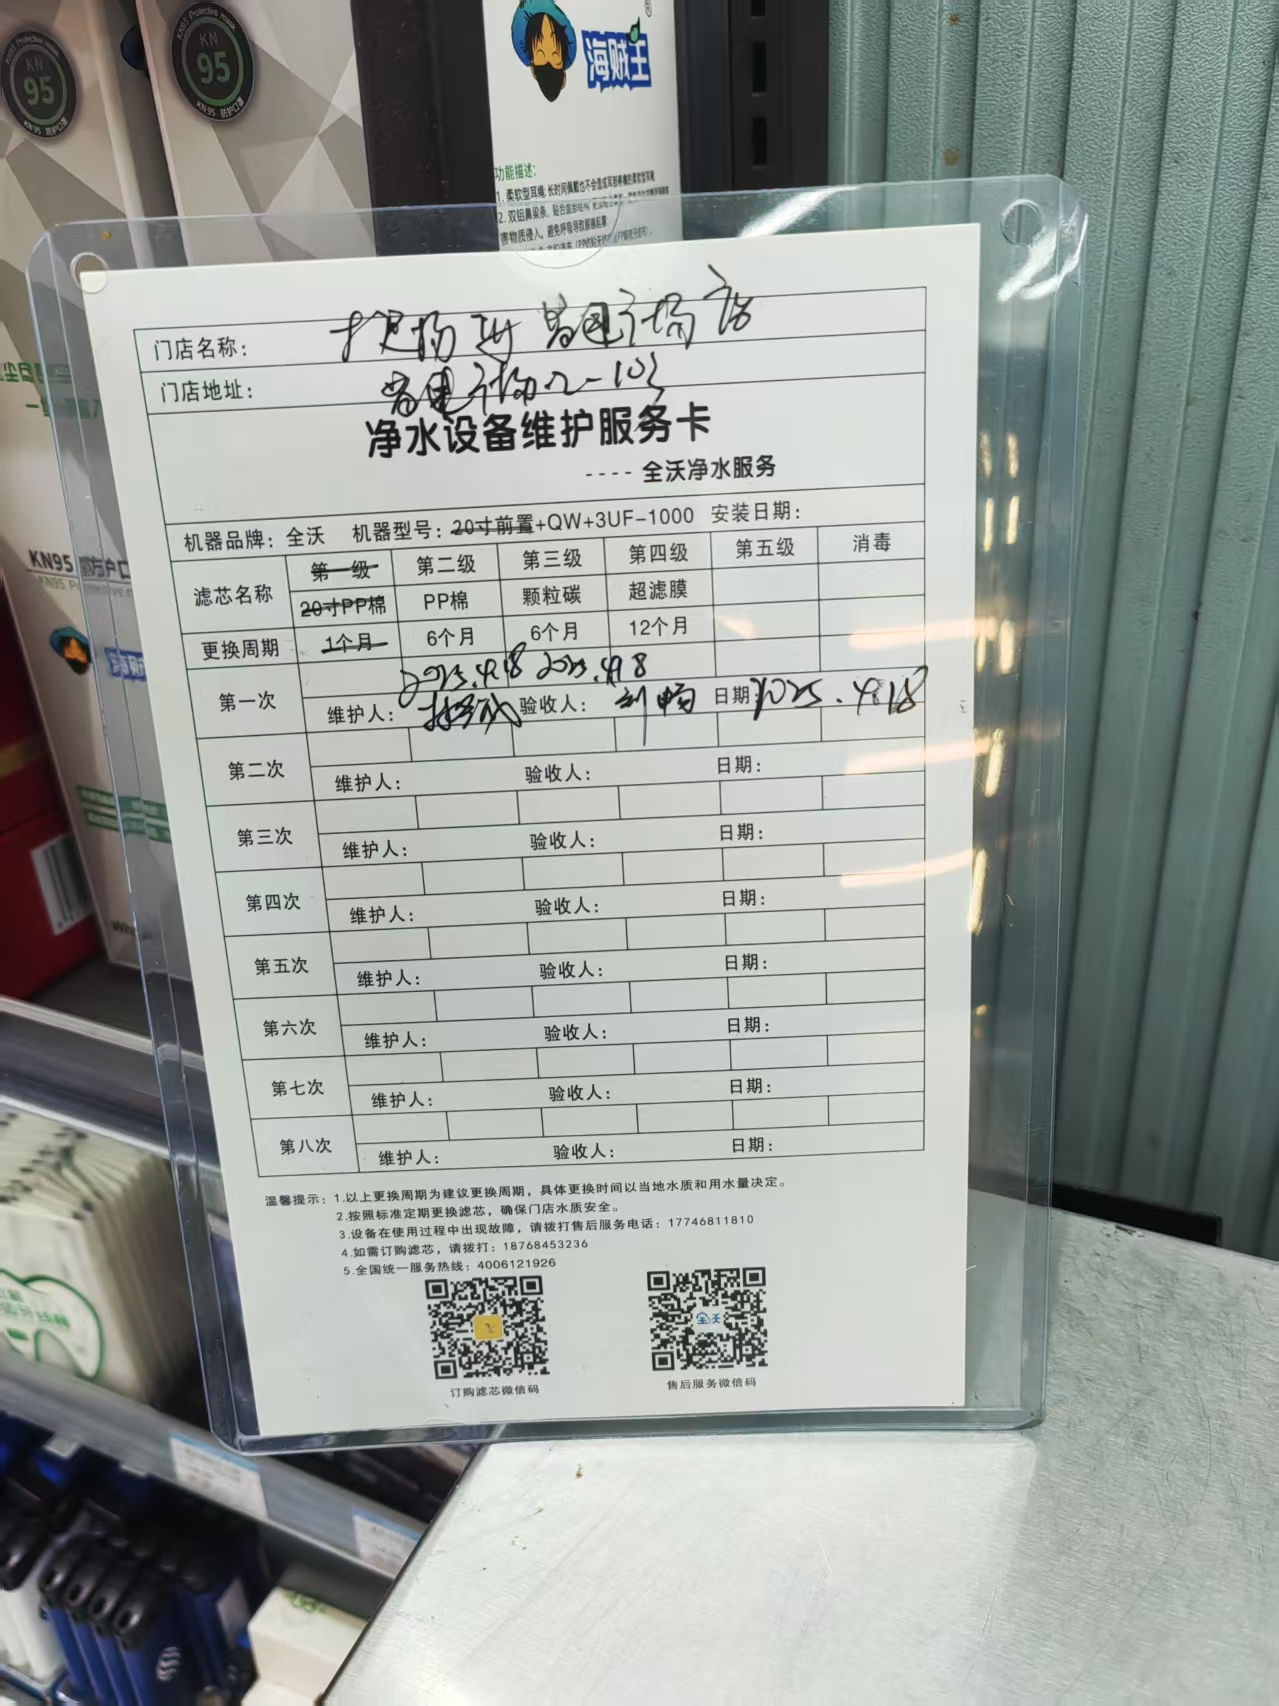 KN95 Protective mask
KN
95
KN95 防护口罩
KN95 Protective mask
KN
95
KN95 防护口罩
海贼王
®
功能描述:
1. 柔软型耳绳, 长时间佩戴也不会造成耳部疼痛的柔软型耳绳
2. 双铝鼻梁条,
害物质侵入, 避免呼吸导致眼镜起雾
KN95
门店名称:
门店地址:
净水设备维护服务卡
---- 全沃净水服务
机器品牌: 全沃 机器型号: 20寸前置+QW+3UF-1000 安装日期:
滤芯名称 第一级 第二级 第三级 第四级 第五级 消毒
20寸PP棉 PP棉 颗粒碳 超滤膜
更换周期 1个月 6个月 6个月 12个月
第一次 2025.4.18 2025.4.18
维护人: 验收人: 刘畅 日期: 2025.4.18
第二次
维护人: 验收人: 日期:
第三次
维护人: 验收人: 日期:
第四次
维护人: 验收人: 日期:
第五次
维护人: 验收人: 日期:
第六次
维护人: 验收人: 日期:
第七次
维护人: 验收人: 日期:
第八次
维护人: 验收人: 日期:
温馨提示: 1.以上更换周期为建议更换周期, 具体更换时间以当地水质和用水量决定。
2.按照标准定期更换滤芯, 确保门店水质安全。
3.设备在使用过程中出现故障, 请拨打售后服务电话: 17746811810
4.如需订购滤芯, 请拨打: 18768453236
5.全国统一服务热线: 4006121926
全沃
订购滤芯微信码
售后服务微信码